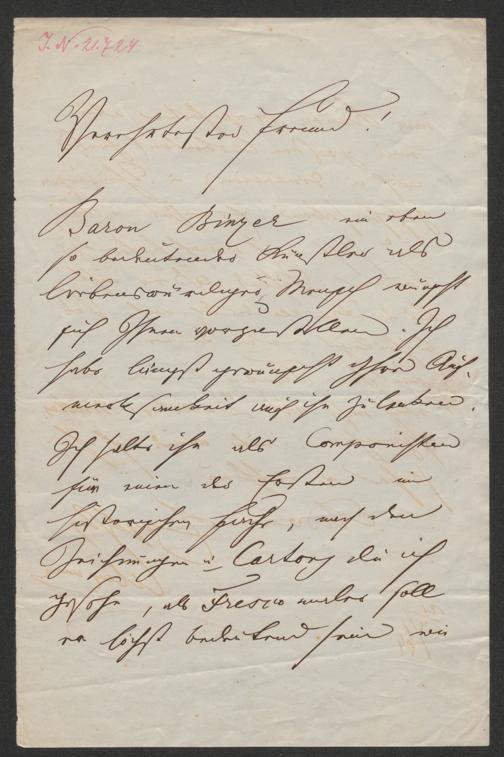 J. N. 21.724
Verehrtester Freund!
Baron Binzer ein eben
so bedeutender Künstler als
liebenswürdiger Mensch wünscht
sich Ihnen vorzustellen. Ich
habe längst gewünscht Ihre Auf-
merksamkeit auf ihn zu lenken.
Ich halte ihn als Componisten
für einen der Ersten im
historischen Fache, nach den
Zeichnungen u. Cartons die ich
sah, als Fresco maler soll
er höchst bedeutend sein wie